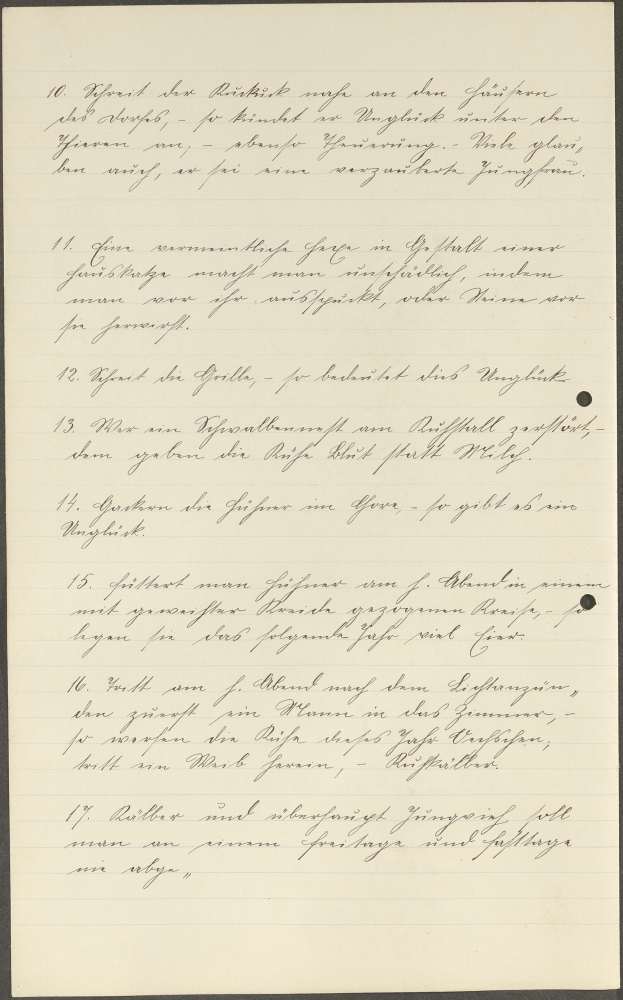 10. Schreit der Kuckuck nahe an den Häusern
des Dorfes, – so kündet er Unglück unter den
Thieren an, – ebenso Theuerung. – Viele glau„
ben auch, er sei eine verzauberte Jungfrau.
11. Eine vermeintliche Hexe in Gestalt einer
Hauskatze macht man unschädlich, indem
man vor ihr ausspuckt, oder Steine vor
sie herwirft.
12. Schreit die Grille, – so bedeutet dies Unglück.
13. Wer ein Schwalbennest am Kuhstall zerstört, –
dem geben die Kühe Blut statt Milch.
14. Gackern die Hühner im Chore, – so gibt es ein
Unglück.
15. Füttert man Hühner am h. Abend in einem
mit geweihter Kreide gezogenen Kreise, – so
legen sie das folgende Jahr viel Eier.
16. Tritt am h. Abend nach dem Lichtanzün„
den zuerst ein Mann in das Zimmer, –
so werfen die Kühe dieses Jahr Oechschen;
tritt ein Weib herein, – Kuhkälber.
17. Kälber und überhaupt Jungvieh soll
man an einem Freitage und Fasttage
nie abge„